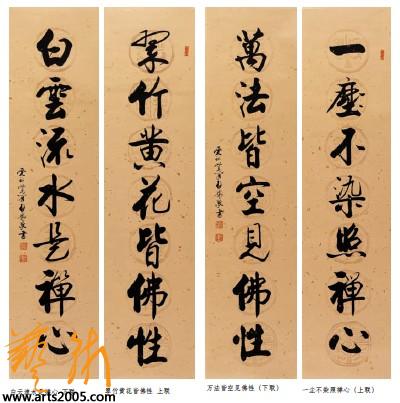 一塵不染照禪心
萬法皆空見佛性
翠竹黄花皆佛性
白雲流水是禪心
白云流水是禅心 下联
翠竹黄花皆佛性 上联
万法皆空见佛性（下联）
一尘不染照禅心（上联）
藝術
www.arts2005.com